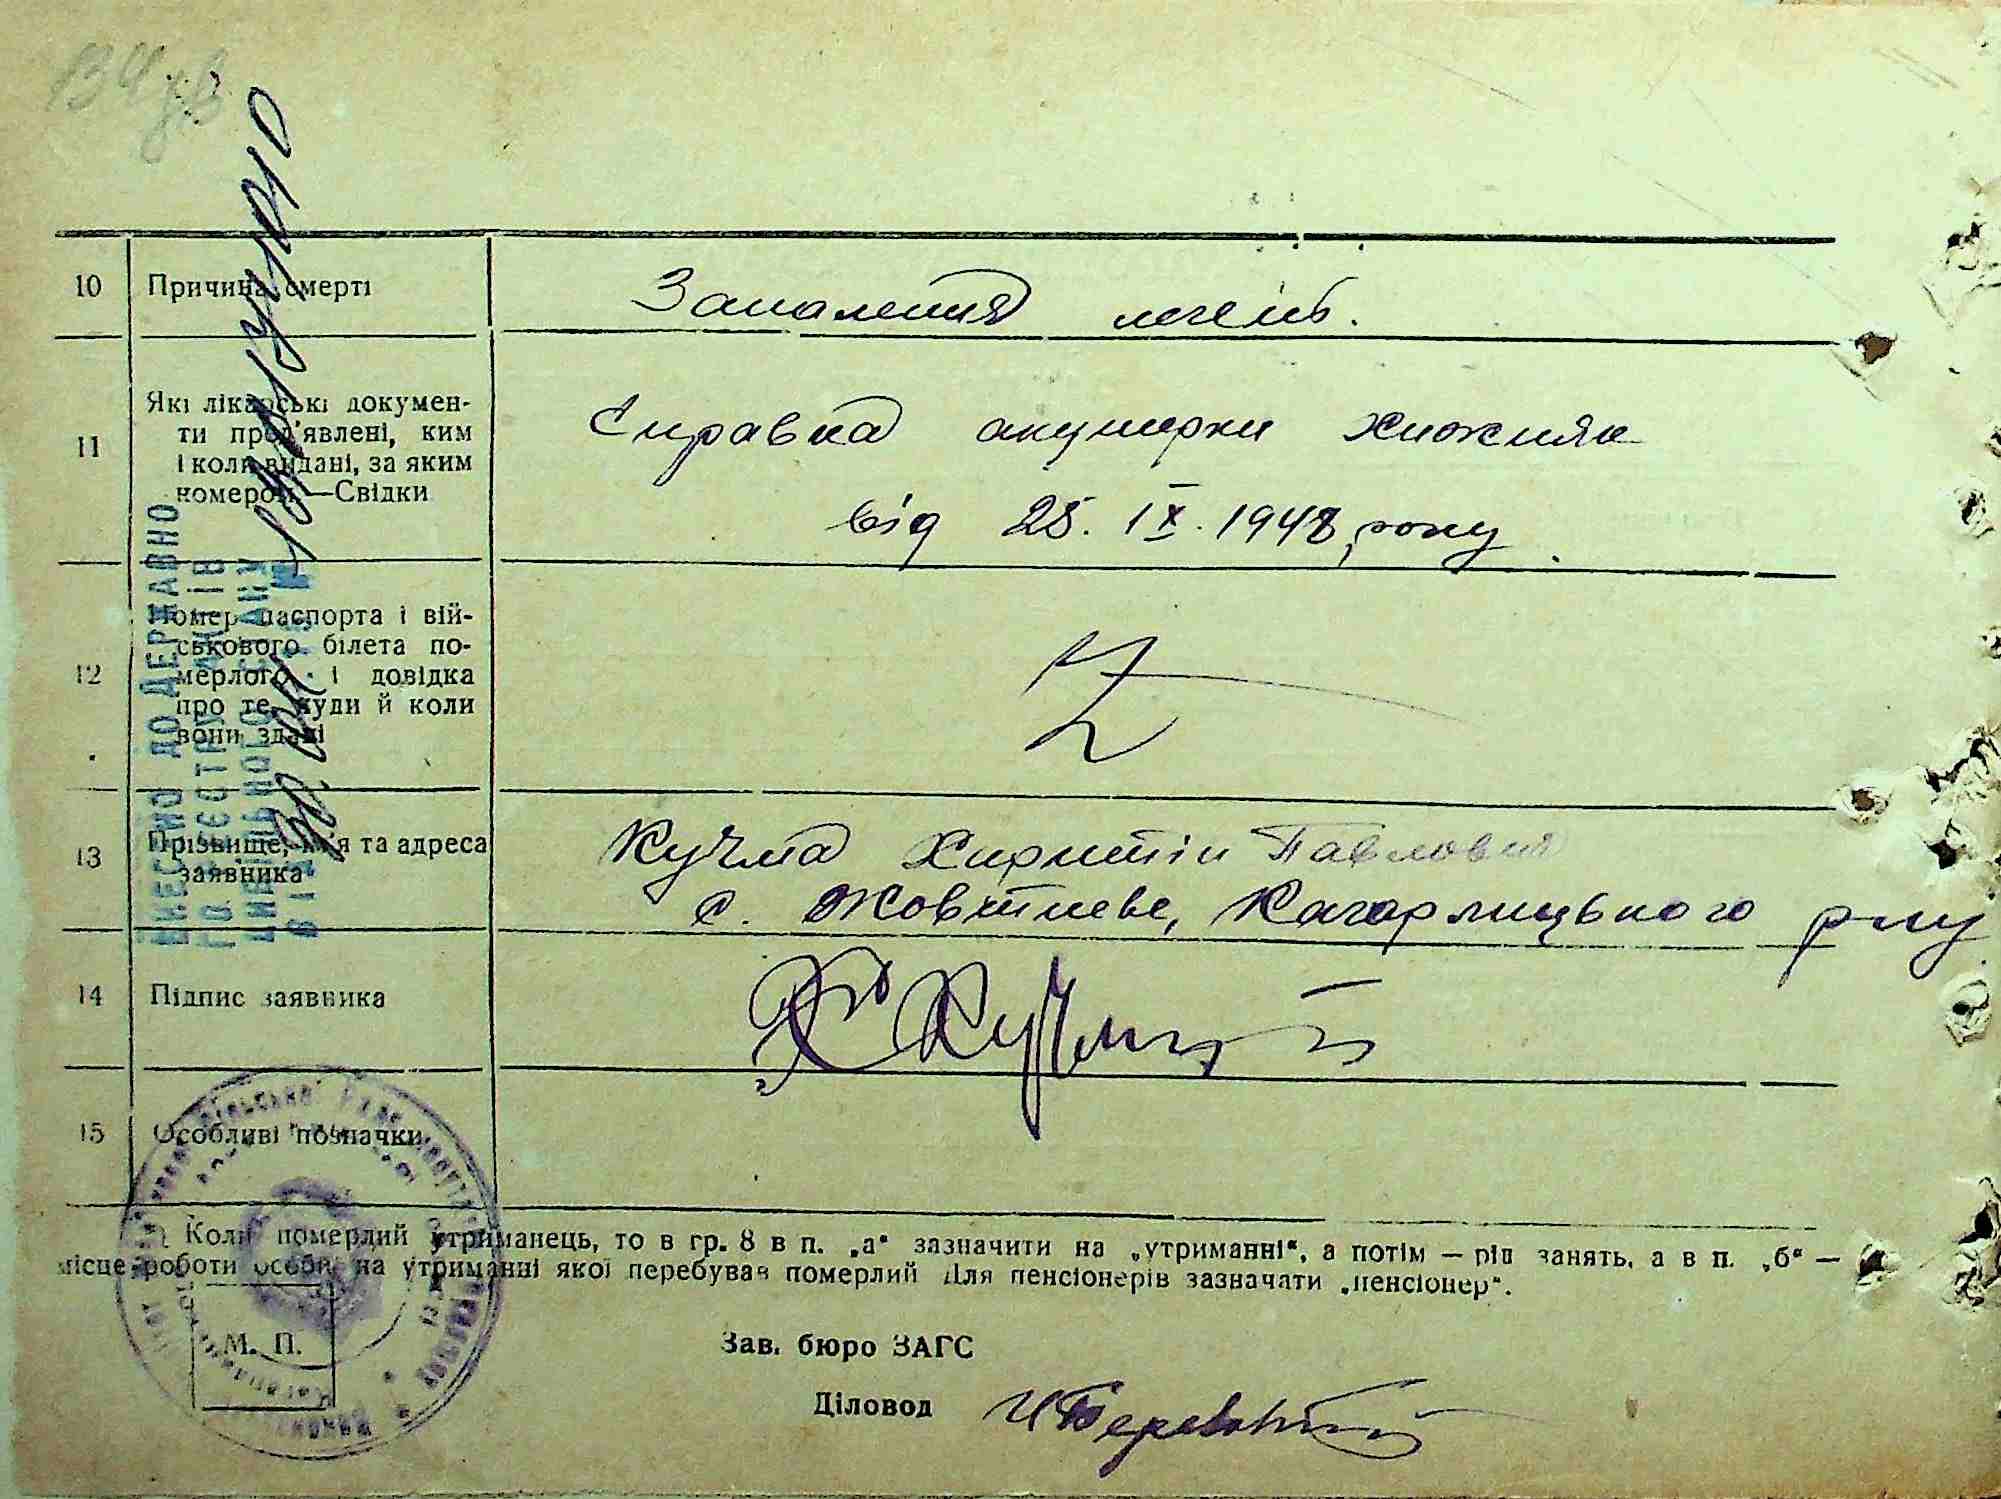 134зв
10 Причина смерті Запалення легень.
11 Які лікарські докумен-
ти пред'явлені, ким
і коли видані, за яким
номером.—Свідки
Справка акушерки Хижняк
від 25. IX. 1948 року
12 Номер паспорта і вій-
ськового білета по-
мерлого і довідка
про те, куди й коли
вони здані
Z
13 Прізвище, ім'я та адреса
заявника
Кучма Харитін Павлович
с. Жовтневе, Кагарлицького р-ну
14 Підпис заявника Х Кучма
15 Особливі позначки
Коли померлий утриманець, то в гр. 8 в п. „а“ зазначити на „утриманні“, а потім — рід занять, а в п. „б“ —
місце роботи особи, на утриманні якої перебував померлий Для пенсіонерів зазначати „пенсіонер“.
М. П.
Зав. бюро ЗАГС
Діловод
ВНЕСЕНО ДО ДЕРЖАВНОГО
РЕЄСТРУ АКТІВ
ЦИВІЛЬНОГО СТАНУ
ВІД №